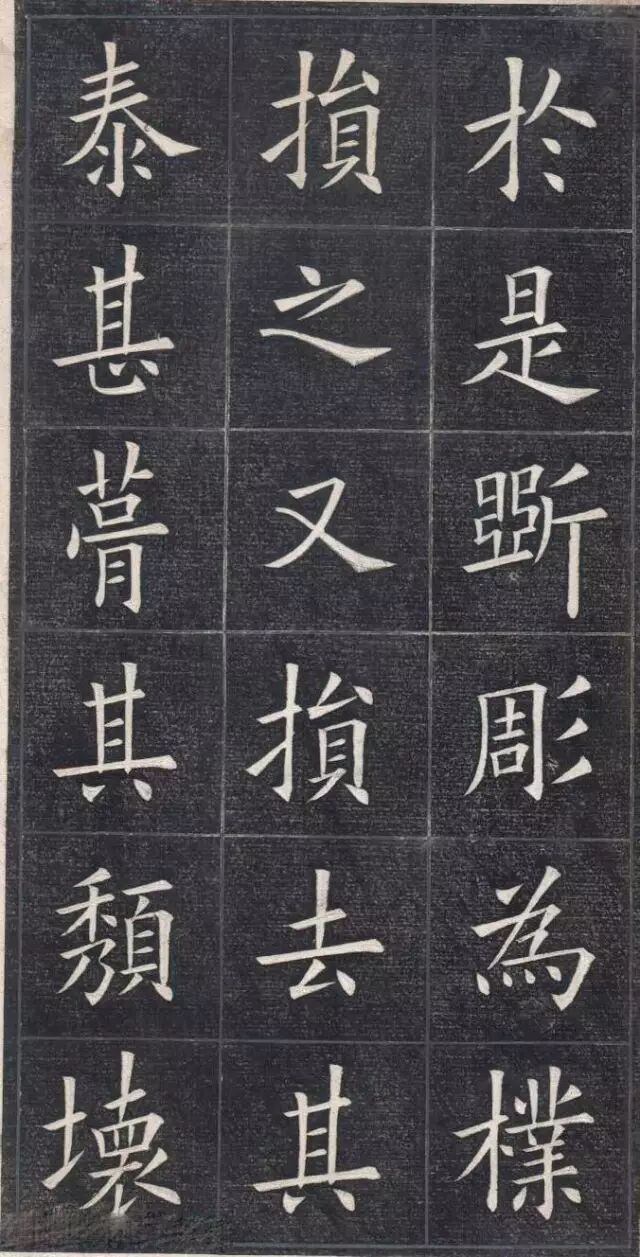 於是斵彫為樸
損之又損去其
泰甚葺其頹壞